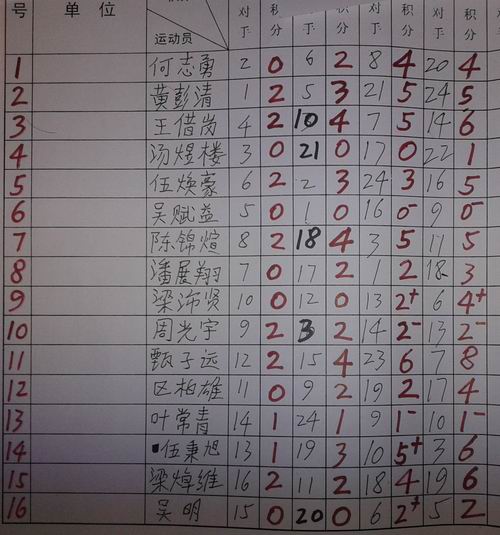 号 单位 运动员 对于 积分 对于 积分 对于 积分 对于 积分
1 何志勇 2 0 6 2 8 4 20 4
2 黄彭清 1 2 5 3 21 5 24 5
3 王借岗 4 2 10 4 7 5 14 6
4 汤煜楼 3 0 21 0 17 0 22 1
5 伍焕豪 6 2 2 3 24 3 16 5
6 吴赋益 5 0 1 0 16 0- 9 0-
7 陈锦煊 8 2 18 4 3 5 11 5
8 潘展翔 7 0 17 2 1 2 18 3
9 梁沛贤 10 0 12 0 13 2+ 6 4+
10 周光宇 9 2 3 2 14 2- 13 2-
11 甄子远 12 2 15 4 23 6 7 8
12 区柏雄 11 0 9 2 19 2 17 4
13 叶常青 14 1 24 1 9 1- 10 1-
14 伍秉旭 13 1 19 3 10 5+ 3 6
15 梁炜维 16 2 11 2 18 4 19 6
16 吴明 15 0 20 0 6 2+ 5 2